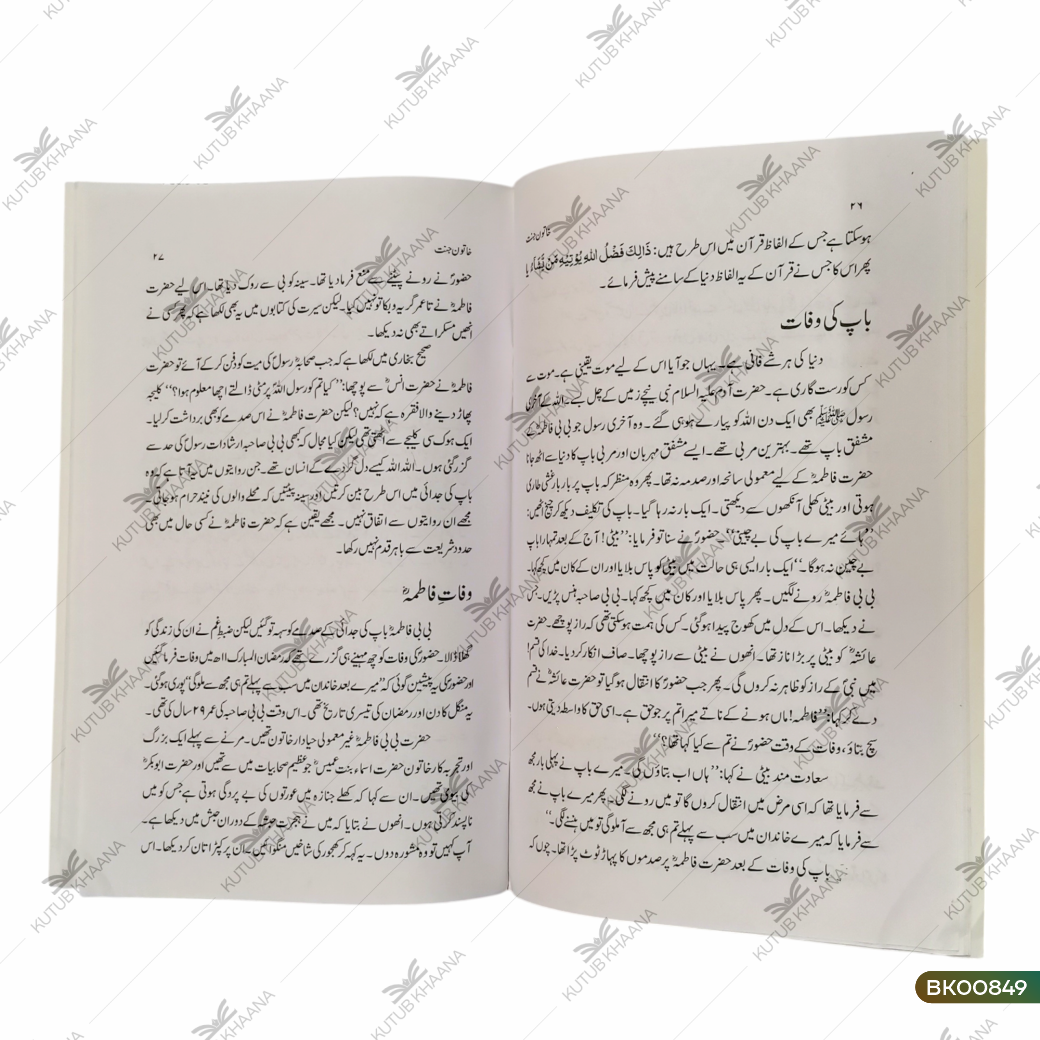 ۲۶
خاتون جنت
ہوسکتا ہے جس کے الفاظ قرآن میں اس طرح ہیں: ذَالِكَ فَضْلُ اللهِ يُؤتِيْهِ مَنْ يَّشَاءُ یا
پھر اس کا جس نے قرآن کے یہ الفاظ دنیا کے سامنے پیش فرمائے۔
باپ کی وفات
دنیا کی ہر شے فانی ہے۔ یہاں جو آیا اس کے لیے موت یقینی ہے۔ موت سے
کس کو رست گاری ہے۔ حضرت آدم علیہ السلام نبی نیچے زمیں کے چل بسے۔ اللہ کے آخری
رسول ﷺ بھی ایک دن اللہ کو پیارے ہو ہی گئے۔ وہ آخری رسول جو بی بی فاطمہؓ کے
مشفق باپ تھے۔ بہترین مربی تھے۔ ایسے مشفق مہربان اور مربی باپ کا دنیا سے اٹھ جانا
حضرت فاطمہؓ کے لیے معمولی سانحہ اور صدمہ نہ تھا۔ پھر وہ منظر کہ باپ پر بار بار غشی طاری
ہوتی اور بیٹی کھلی آنکھوں سے دیکھتی۔ ایک بار نہ رہا گیا۔ باپ کی تکلیف دیکھ کر چیخ اٹھیں:
”ہائے میرے باپ کی بے چینی“۔ حضورؐ نے سنا تو فرمایا: ”بیٹی! آج کے بعد تمہارا باپ
بے چین نہ ہوگا۔“ ایک بار ایسی ہی حالت میں بیٹی کو پاس بلایا اور ان کے کان میں کچھ کہا۔
بی بی فاطمہؓ رونے لگیں۔ پھر پاس بلایا اور کان میں کچھ کہا۔ بی بی صاحبہ ہنس پڑیں۔ جس
نے دیکھا۔ اس کے دل میں کھوج پیدا ہو گئی۔ کس کی ہمت ہوسکتی تھی کہ راز پوچھے۔ حضرت
عائشہؓ کو بیٹی پر بڑا ناز تھا۔ انھوں نے بیٹی سے راز پوچھا۔ صاف انکار کر دیا۔ خدا کی قسم!
میں نبیؐ کے راز کو ظاہر نہ کروں گی۔ پھر جب حضورؐ کا انتقال ہو گیا تو حضرت عائشہؓ نے قسم
دے کر کہا: ”فاطمہ! ماں ہونے کے ناتے میرا تم پر جو حق ہے۔ اسی حق کا واسطہ دیتی ہوں۔
سچ بتاؤ، وفات کے وقت حضورؐ نے تم سے کیا کہا تھا؟“
سعادت مند بیٹی نے کہا: ”ہاں اب بتاؤں گی۔ میرے باپ نے پہلی بار مجھ
سے فرمایا تھا کہ اسی مرض میں انتقال کروں گا تو میں رونے لگی۔ پھر میرے باپ نے مجھ
سے فرمایا کہ میرے خاندان میں سب سے پہلے تم ہی مجھ سے آملو گی تو میں ہنسنے لگی۔“
باپ کی وفات کے بعد حضرت فاطمہؓ پر صدموں کا پہاڑ ٹوٹ پڑا تھا۔ چوں کہ
خاتون جنت
۲۷
حضورؐ نے رونے پیٹنے سے منع فرما دیا تھا۔ سینہ کوبی سے روک دیا تھا۔ اس لیے حضرت
فاطمہؓ نے تا عمر گریہ و بکا تو نہیں کیا۔ لیکن سیرت کی کتابوں میں یہ بھی لکھا ہے کہ پھر کسی نے
انھیں مسکراتے بھی نہ دیکھا۔
صحیح بخاری میں لکھا ہے کہ جب صحابہؓ رسولؐ کی میت کو دفن کر کے آئے تو حضرت
فاطمہؓ نے حضرت انسؓ سے پوچھا: ”کیا تم کو رسول اللہؐ پر مٹی ڈالتے اچھا معلوم ہوا؟“ کلیجہ
پھاڑ دینے والا فقرہ ہے کہ نہیں؟ لیکن حضرت فاطمہؓ نے اس صدمے کو بھی برداشت کر لیا۔
ایک ہوک سی کلیجے سے اٹھتی تھی لیکن کیا مجال کہ کبھی بی بی صاحبہ ارشادات رسولؐ کی حد سے
گزر گئی ہوں۔ اللہ اللہ کیسے دل گردے کے انسان تھے۔ جن روایتوں میں یہ آتا ہے کہ وہ
باپ کی جدائی میں اس طرح بین کرتیں اور سینہ پیٹتیں کہ محلے والوں کی نیند حرام ہوجاتی۔
مجھے ان روایتوں سے اتفاق نہیں۔ مجھے یقین ہے کہ حضرت فاطمہؓ نے کسی حال میں بھی
حدود شریعت سے باہر قدم نہیں رکھا۔
وفاتِ فاطمہؓ
بی بی فاطمہؓ باپ کی جدائی کے صدمے کو سہہ تو گئیں لیکن ضبط غم نے ان کی زندگی کو
گھلا ڈالا۔ حضورؐ کی وفات کو چھ مہینے ہی گزرے تھے کہ رمضان المبارک ۱۱ھ میں وفات فرما گئیں
اور حضورؐ کی یہ پیشین گوئی کہ ”میرے بعد خاندان میں سب سے پہلے تم ہی مجھ سے ملو گی“ پوری ہوگئی۔
یہ منگل کا دن اور رمضان کی تیسری تاریخ تھی۔ اس وقت بی بی صاحبہ کی عمر ۲۹ سال کی تھی۔
حضرت بی بی فاطمہؓ غیر معمولی حیا دار خاتون تھیں۔ مرنے سے پہلے ایک بزرگ
اور تجربہ کار خاتون حضرت اسماء بنت عمیسؓ جو عظیم صحابیات میں سے تھیں اور حضرت ابوبکرؓ
کی بیوی تھیں۔ ان سے کہا کہ کھلے جنازہ میں عورتوں کی بے پردگی ہوتی ہے جس کو میں
ناپسند کرتی ہوں۔ انھوں نے بتایا کہ میں نے ہجرت حبشہ کے دوران حبش میں دیکھا ہے۔
آپ کہیں تو وہ مشورہ دوں۔ یہ کہہ کر کھجور کی شاخیں منگوائیں۔ ان پر کپڑا تان کر دیکھا۔ اس
BK00849
KUTUB KHAANA